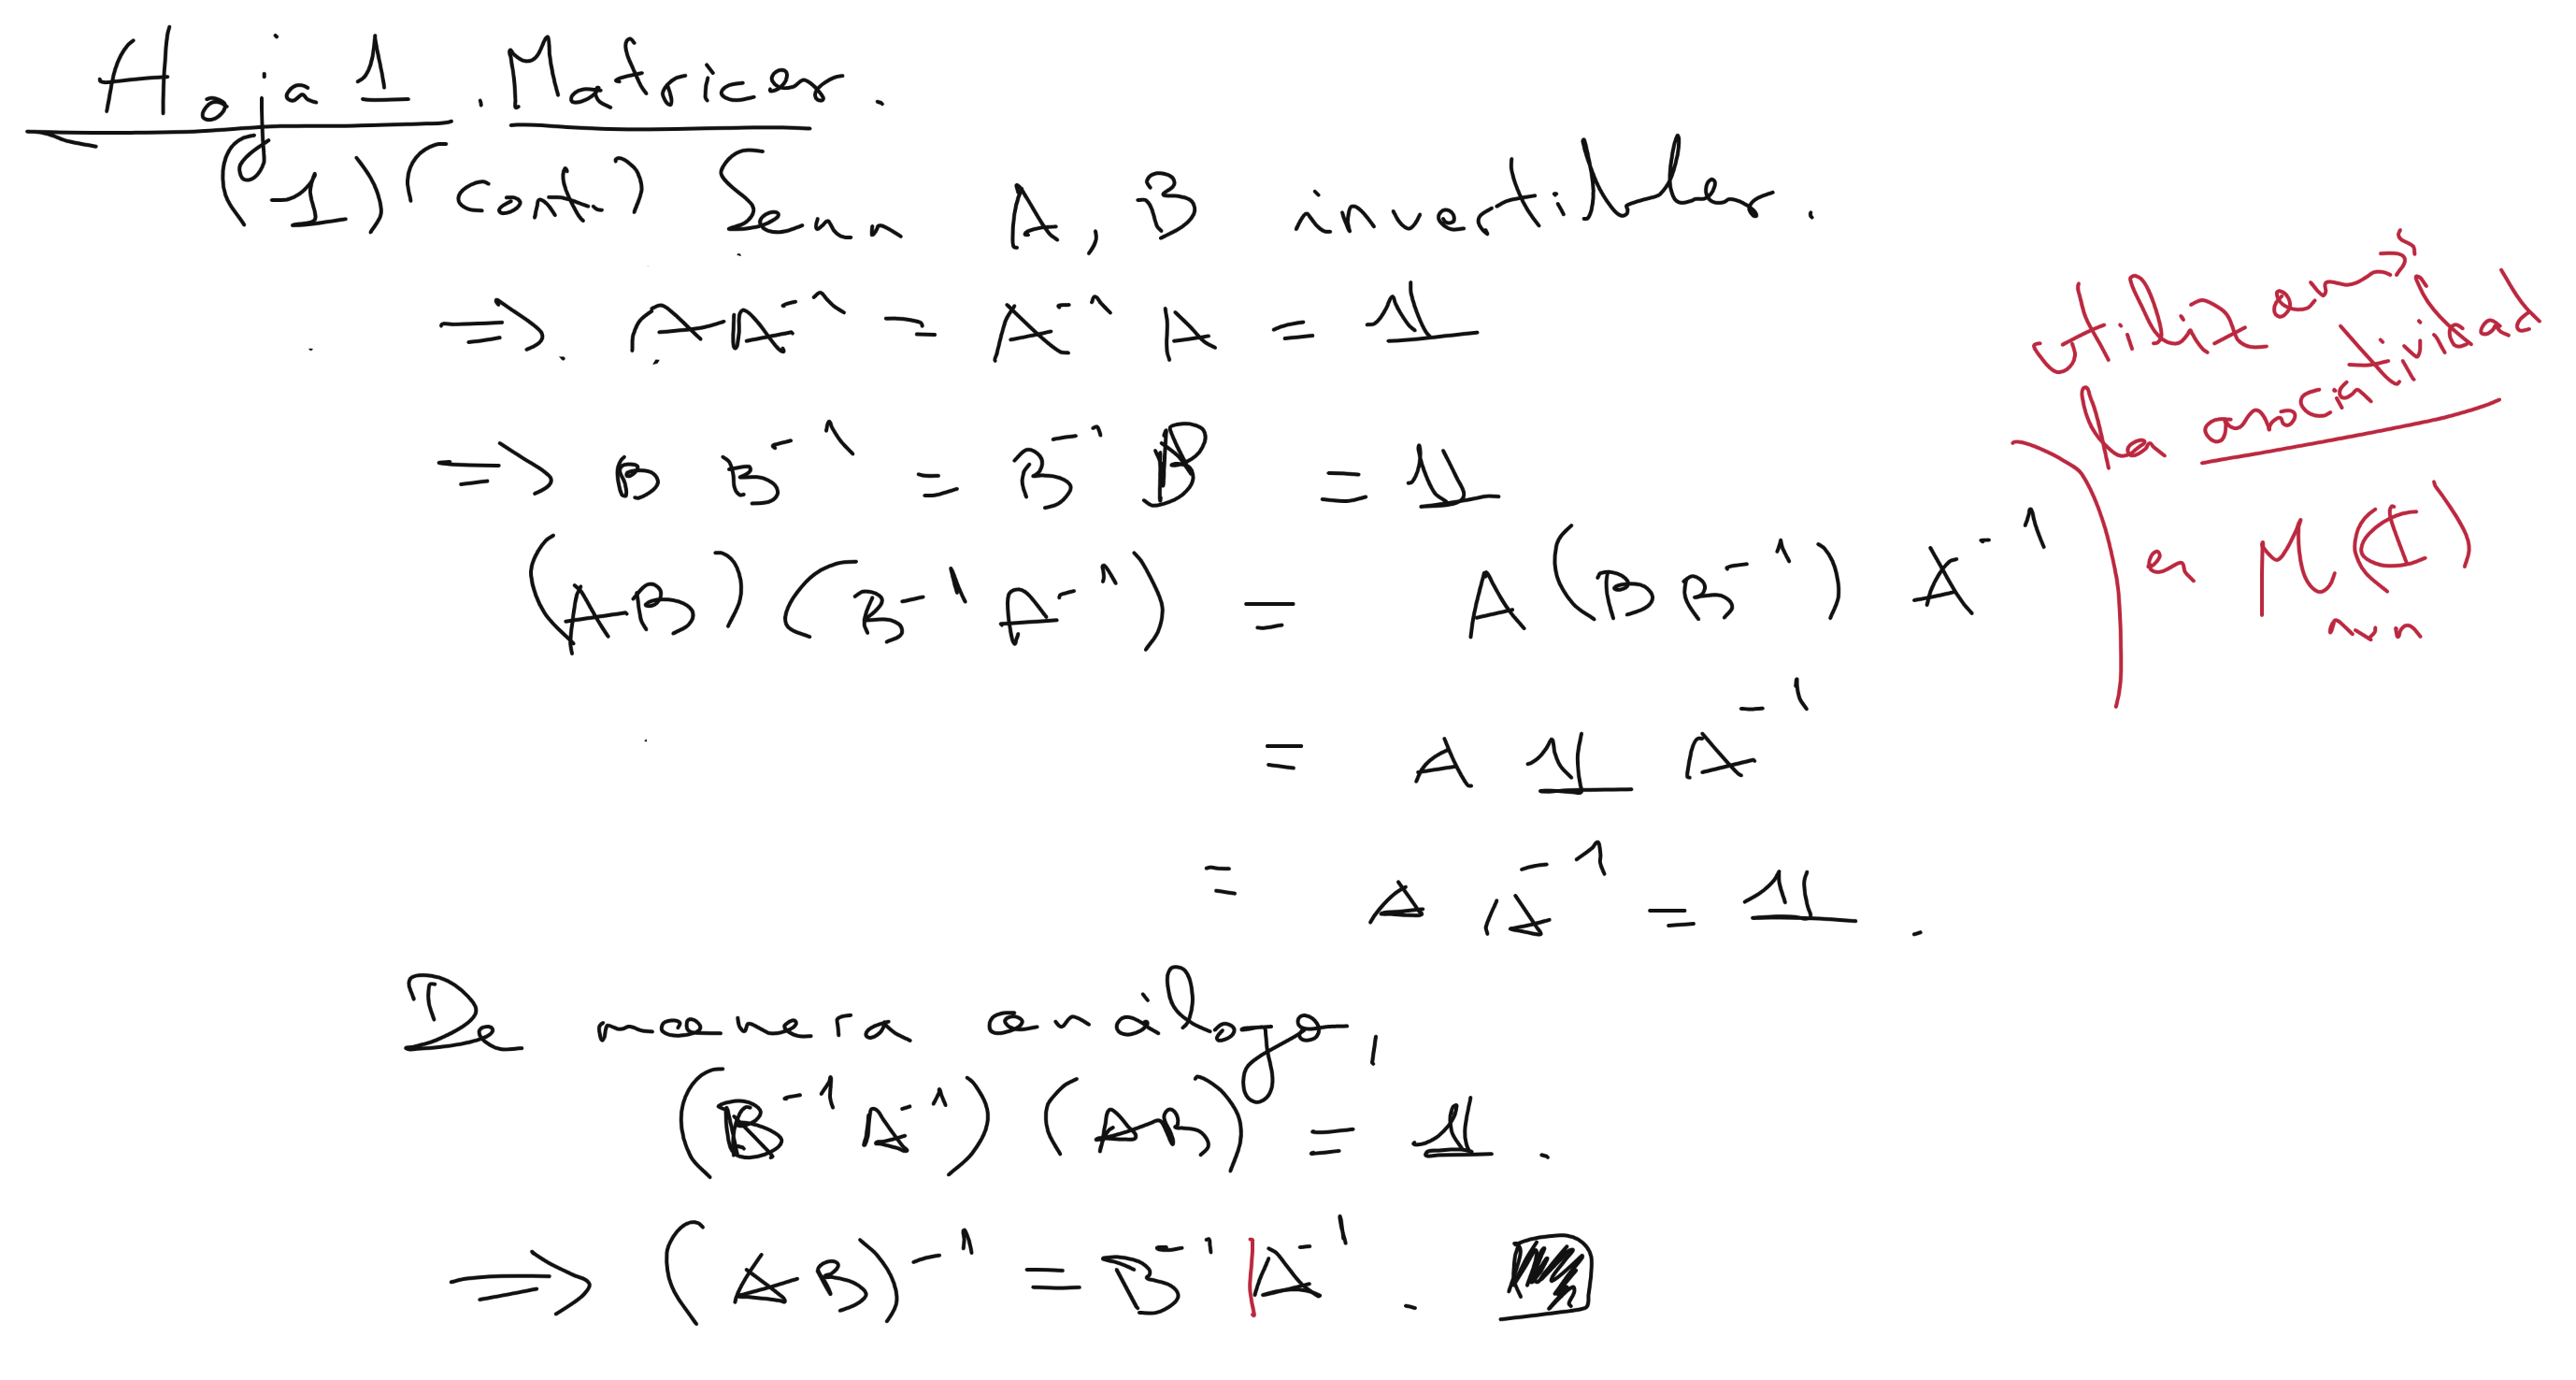 Hoja 1. Matrices.
(1) (cont.) Sean A, B invertibles.
⟹ A A⁻¹ = A⁻¹ A = 𝟙
⟹ B B⁻¹ = B⁻¹ B = 𝟙
(AB) (B⁻¹ A⁻¹) = A (B B⁻¹) A⁻¹
= A 𝟙 A⁻¹
= A A⁻¹ = 𝟙.
utilizamos
la asociatividad
en M(ℂ)
n×n
De manera análoga,
(B⁻¹ A⁻¹) (AB) = 𝟙.
⟹ (AB)⁻¹ = B⁻¹ A⁻¹.